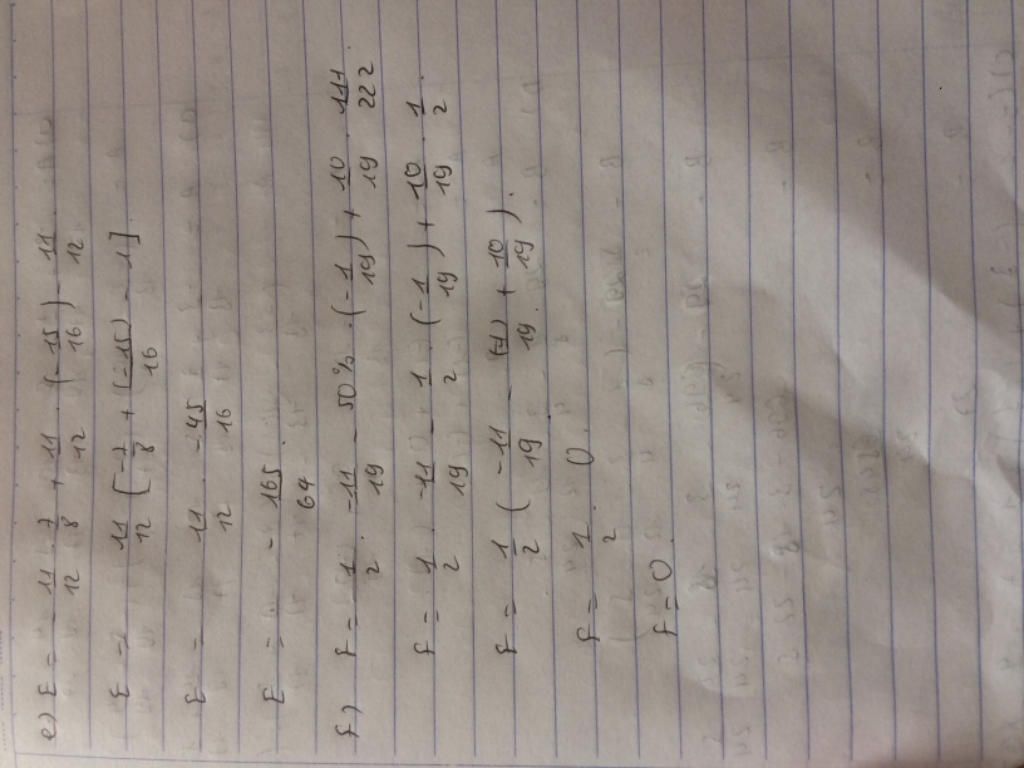 e) E = - 11/12 . 7/8 + 11/12 . (- 15/16) - 11/12
E = 11/12 [-7/8 + (-15)/16 - 1]
E = 11/12 . -45/16
E = - 165/64
f) F = 1/2 . -11/19 - 50% . (-1/19) + 10/19 . 111/222 .
F = 1/2 . -11/19 - 1/2 . (-1/19) + 10/19 . 1/2 .
F = 1/2 (-11/19 - (-1)/19 + 10/19).
F = 1/2 . 0 .
F = 0 .